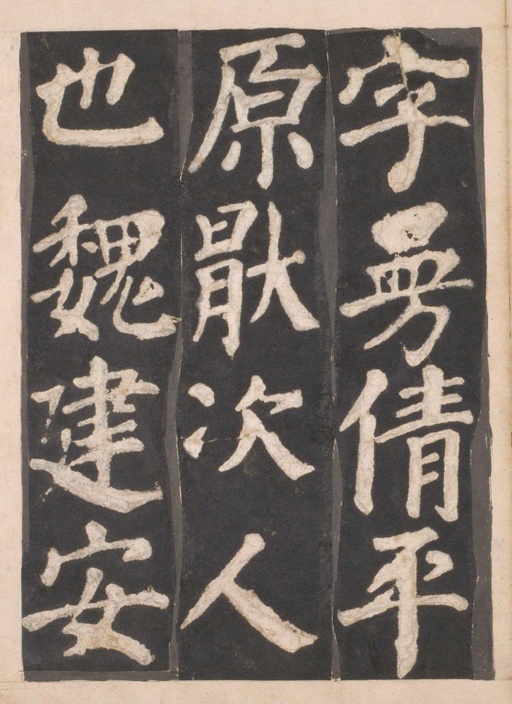 字曼倩平
原猒次人
也魏建安